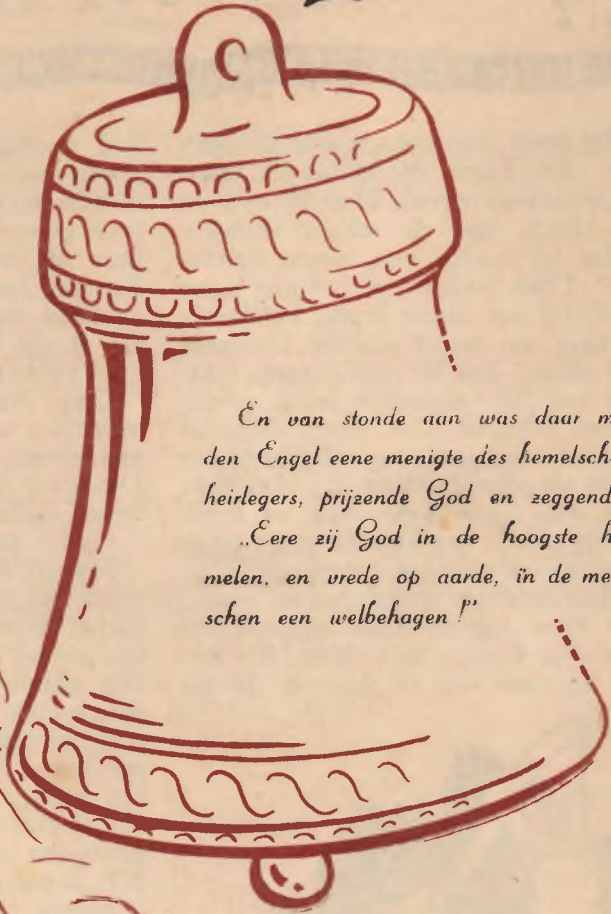 En van stonde aan was daar m
den Engel eene menigte des hemelsch
heirlegers, prijzende God en zeggend
„Eere zij God in de hoogste h
melen, en vrede op aarde, in de me
schen een welbehagen !"